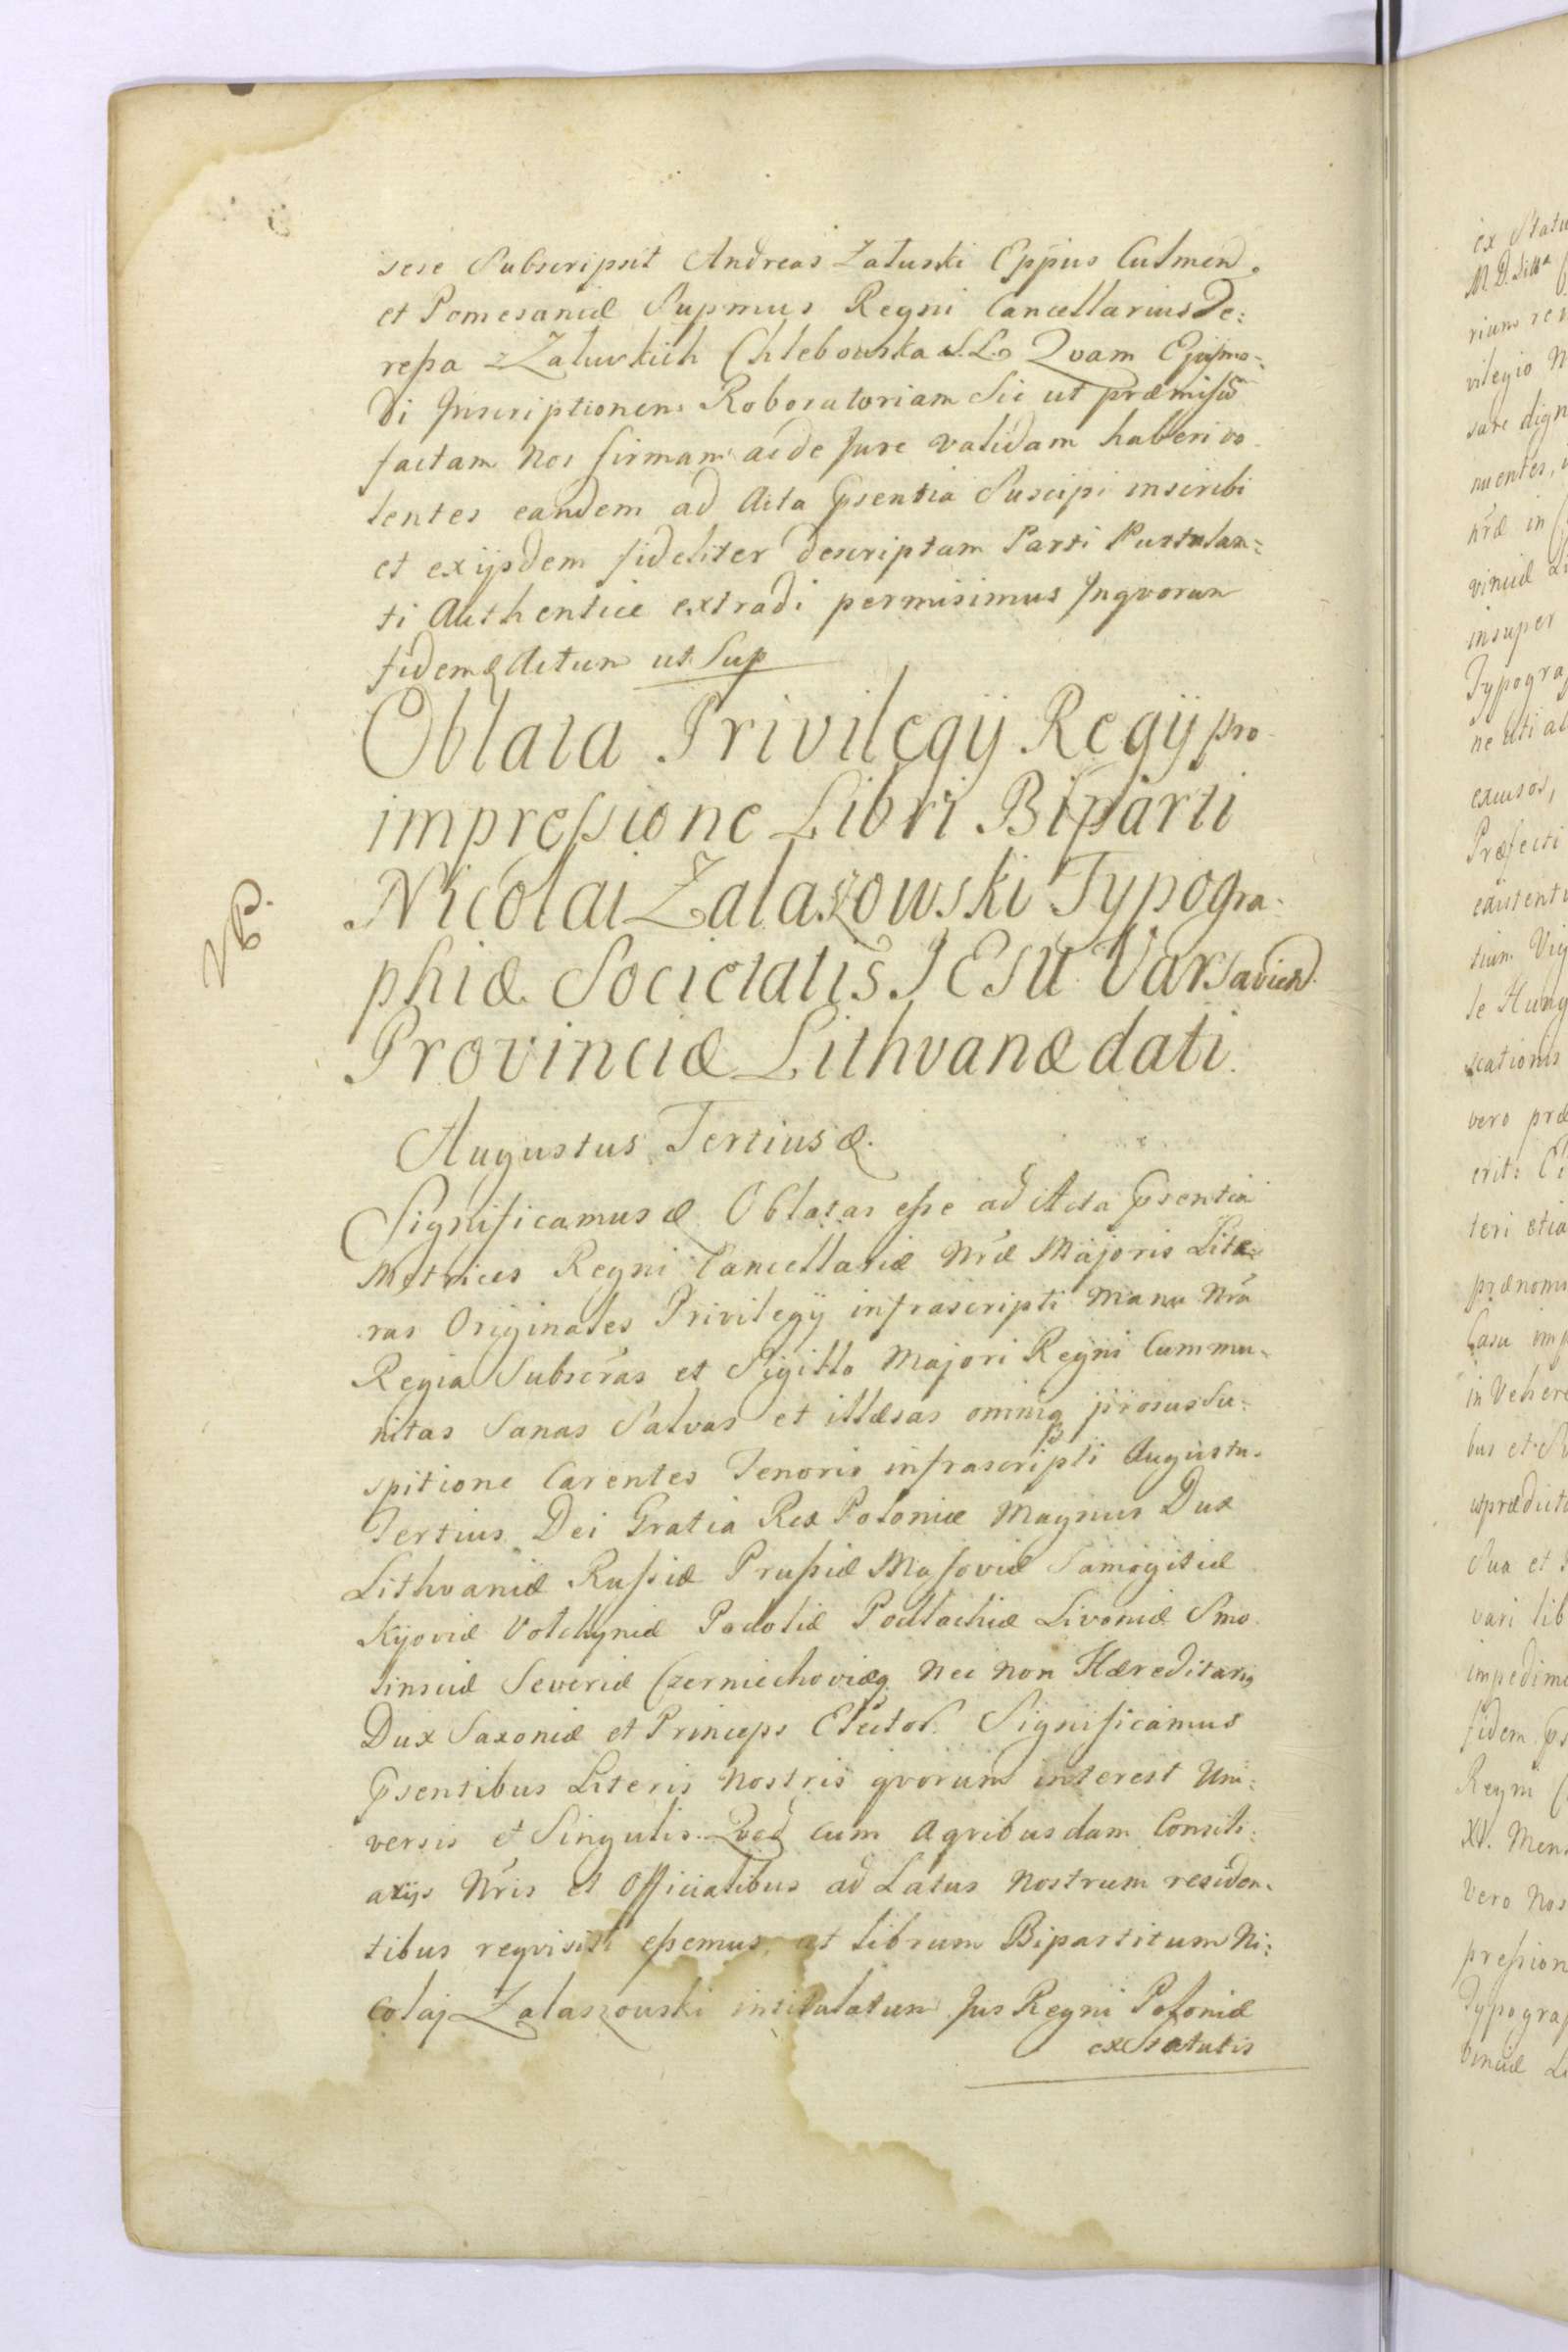 sese Subscripsit Andreas Załuski Eppus Culmen.
et Pomesaniæ Supmus Regni Cancellarius The:
reſsa z Załuskich Chlebowska L.L. Qvam Ejusmo:
di Inscriptionem Roboratoriam Sic ut præmiſsũ
factam Nos firmam ac de Jure validam haberi vo
lentes eandem ad Acta Pſsentia Suscipi inscribi
et ex ijsdem fideliter descriptam Parti Postulan:
ti Authentice extradi permisimus In qvorum
fidem & Actum ut Sup
Oblata Privilegij Regij pro
impreſsione Libri Biparti
Nicolai Zalaszowski Typogra:
phiæ Societatis JESU Varsavien.
Provinciæ Lithvanæ dati.
NB.
Augustus Tertius &.
Significamus & Oblatas eſse ad Acta Pſsentia
Metrices Regni Cancellariæ Nræ Majoris Lite:
ras Originales Privilegij infrascripti Manu Nrã
Regia Subscr̃as et Sigillo Majori Regni Commu:
nitas Sanas Salvas et illæsas omniq prorsus Su:
spitione Carentes Tenoris infrascripti Augustus
Tertius Dei Gratia Rex Poloniæ Magnus Dux
Lithvaniæ Ruſsiæ Pruſsiæ Maſoviæ Samogitiæ
Kijoviæ Volchyniæ Podoliæ Podlachiæ Livoniæ Smo
linsciæ Severiæ Czerniechoviæq Nec non Hæreditarig
Dux Saxoniæ et Princeps Elector. Significamus
Pſsentibus Literis Nostris qvorum interest Uni:
versis et Singulis. Qvod cum a qvibusdam Consili:
arijs Nr̃is et Officialibus ad Latus Nostrum residen:
tibus reqvisiti eſsemus, ut librum Bipartitum Ni:
colaj Zalaszowski intitulatum Jus Regni Poloniæ
ex Statutis
ex Statu
rium
vilegio
sare dign
nuentes,
nræ in
vinciæ
insuper
Typogra
ne uti
excusos,
Præfecti
scationis
vero præ
erit:
teri etia
prænomi
Casu imp
in Vehere
bus et
Sua et
vari lib
impedime
fidem
Regni
XV. Mens
Vero Nos
preſsion
Typograp
vinciæ